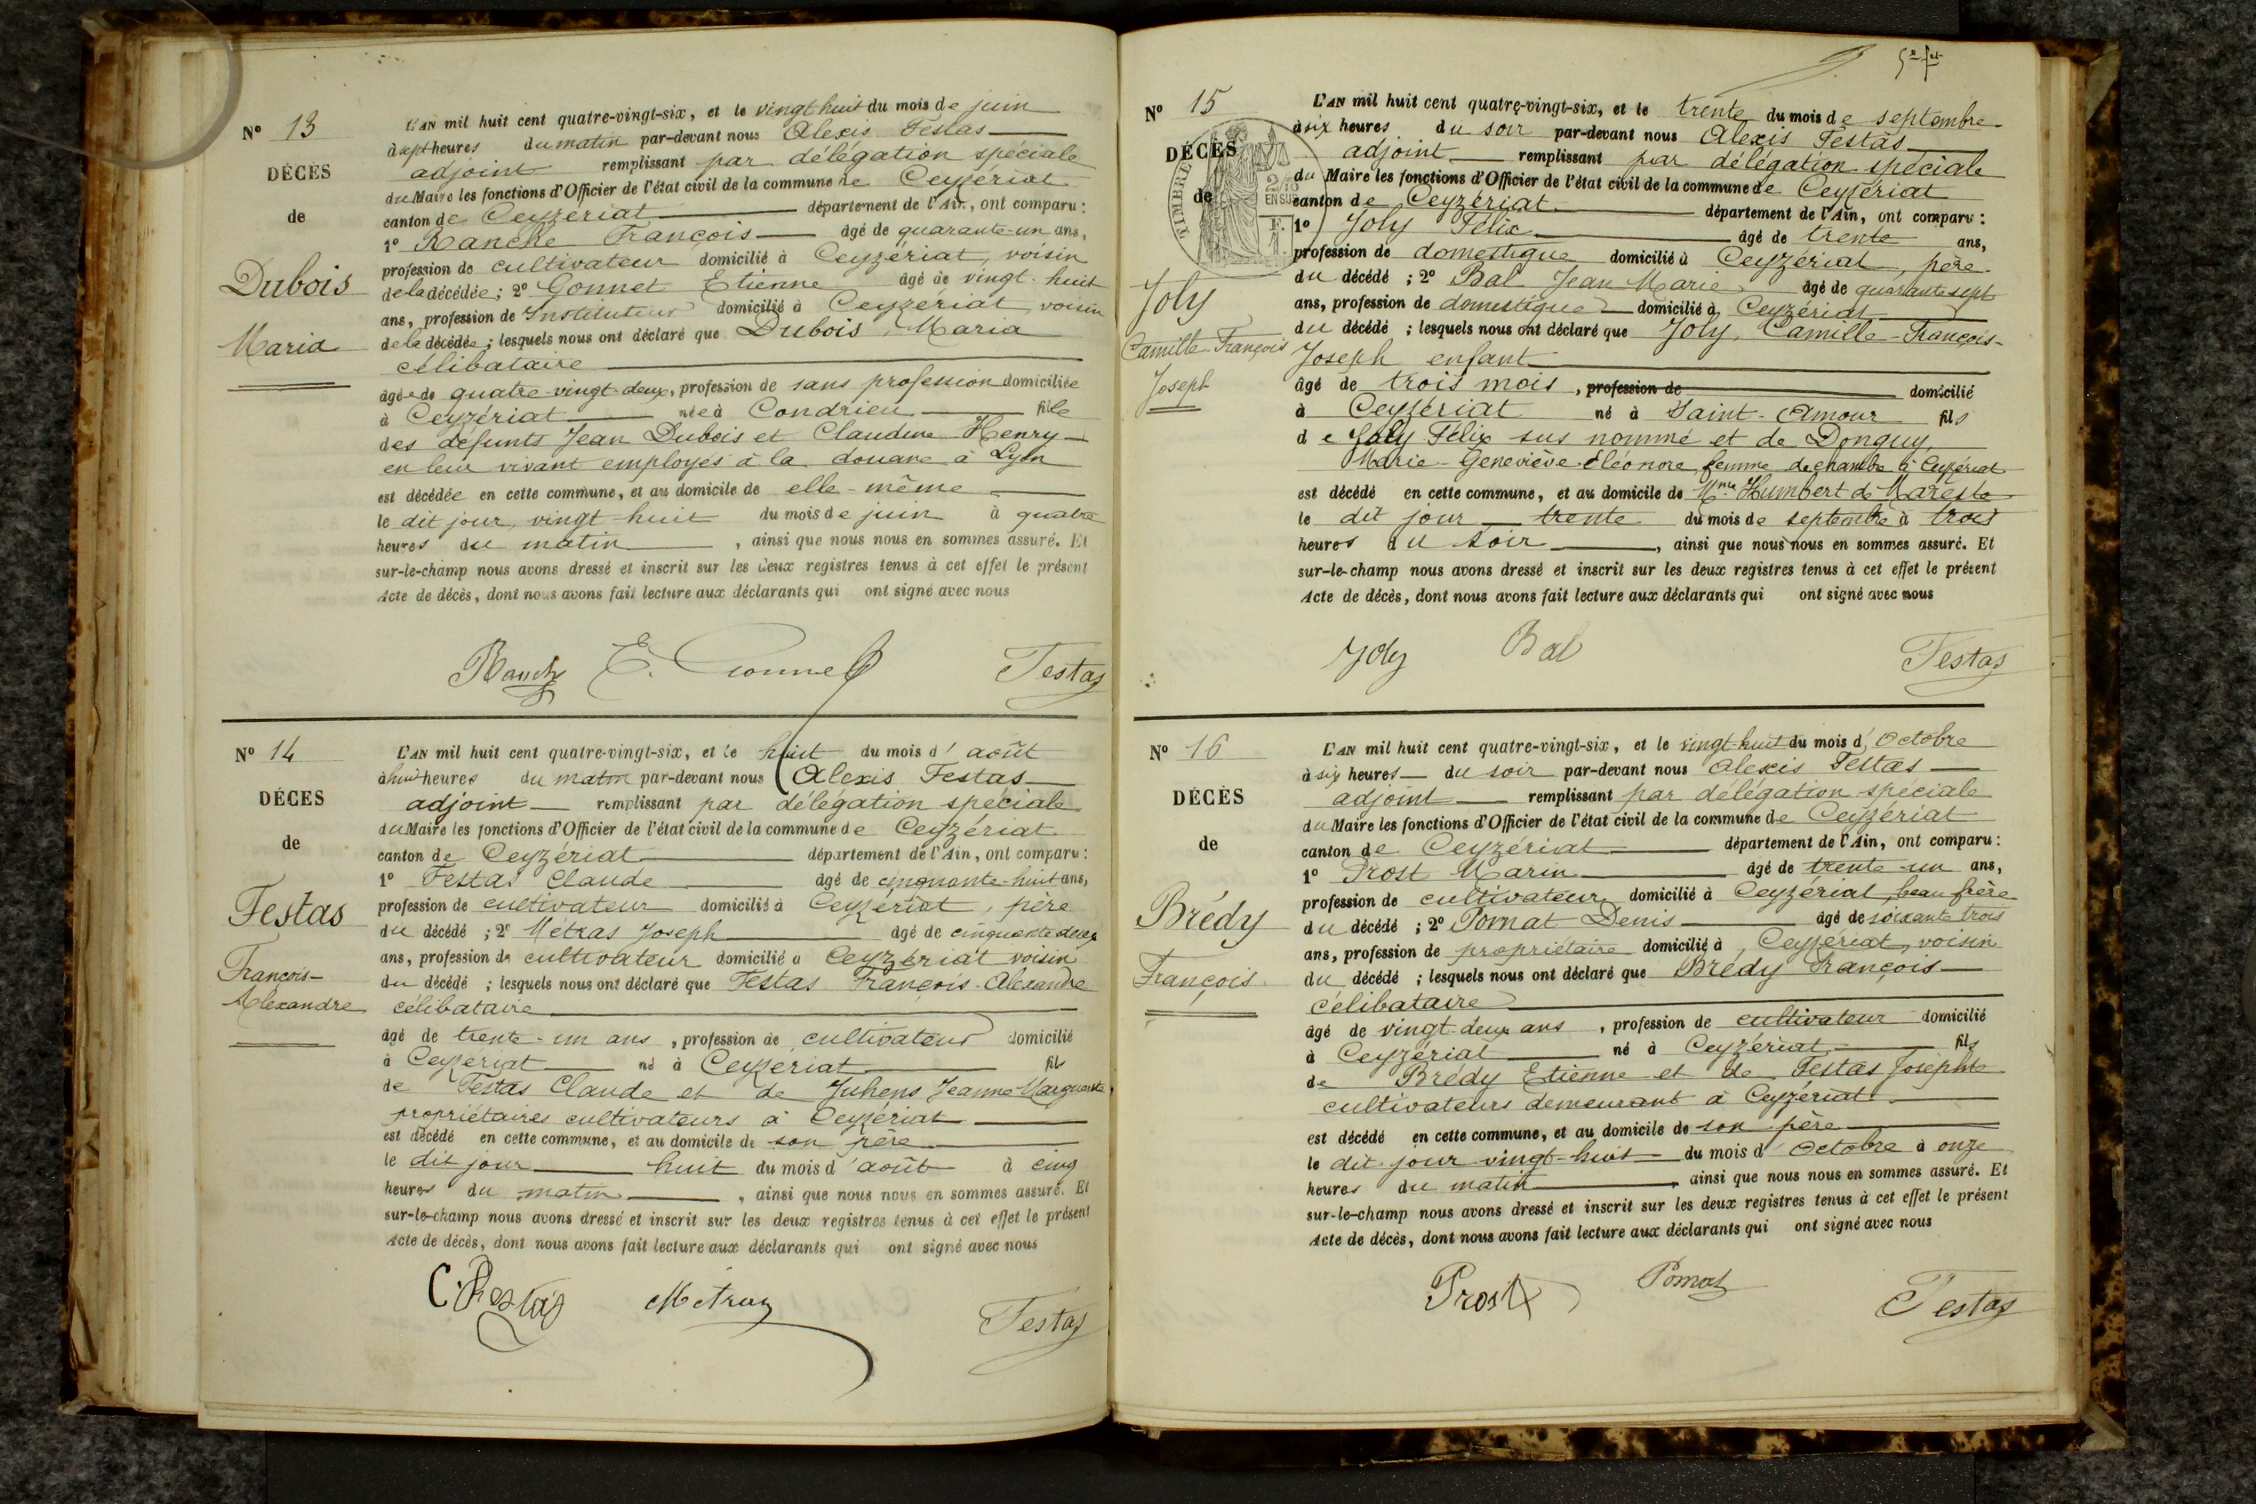 N° 13
DÉCÈS
de
Dubois
Maria
L'AN mil huit cent quatre-vingt-six, et le vingt huit du mois de juin
à sept heures du matin par-devant nous Alexis Festas
adjoint remplissant par délégation spéciale
du Maire les fonctions d'Officier de l'état civil de la commune de Ceyzériat
canton de Ceyzériat département de l'Ain, ont comparu :
1° Ranche François âgé de quarante-un ans,
profession de cultivateur domicilié à Ceyzériat, voisin
de la décédée ; 2° Gonnet Etienne âgé de vingt-huit
ans, profession de Instituteur domicilié à Ceyzeriat voisin
de la décédée ; lesquels nous ont déclaré que Dubois, Maria
célibataire
âgée de quatre-vingt-deux, profession de sans profession domiciliée
à Ceyzériat née à Condrieu fille
des défunts Jean Dubois et Claudine Henry
en leur vivant employés à la douane à Lyon
est décédée en cette commune, et au domicile de elle-même
le dit jour, vingt-huit du mois de juin à quatre
heures du matin , ainsi que nous nous en sommes assuré. Et
sur-le-champ nous avons dressé et inscrit sur les deux registres tenus à cet effet le présent
Acte de décès, dont nous avons fait lecture aux déclarants qui ont signé avec nous
E. Gonnet Festas
N° 14
DÉCES
de
Festas
François-
Alexandre
L'AN mil huit cent quatre-vingt-six, et le huit du mois d'août
à huit heures du matin par-devant nous Alexis Festas
adjoint remplissant par délégation spéciale
du Maire les fonctions d'Officier de l'état civil de la commune de Ceyzériat
canton de Ceyzériat département de l'Ain, ont comparu :
1° Festas Claude âgé de cinquante-huit ans,
profession de cultivateur domicilié à Ceyzériat, père
du décédé ; 2° Métras Joseph âgé de cinquante deux
ans, profession de cultivateur domicilié à Ceyzériat voisin
du décédé ; lesquels nous ont déclaré que Festas François-Alexandre
célibataire
âgé de trente-un ans , profession de cultivateur domicilié
à Ceyzériat né à Ceyzériat fils
de Festas Claude et de Juhens Jeanne-Marguerite,
propriétaires cultivateurs à Ceyzériat
est décédé en cette commune, et au domicile de son père
le dit jour huit du mois d'août à cinq
heures du matin , ainsi que nous nous en sommes assuré. Et
sur-le-champ nous avons dressé et inscrit sur les deux registres tenus à cet effet le présent
Acte de décès, dont nous avons fait lecture aux déclarants qui ont signé avec nous
C. Festas Metras Festas
N° 15
DÉCÈS
de
TIMBRE
2/10
EN SUS
Joly
Camille François
Joseph
L'AN mil huit cent quatre-vingt-six, et le trente du mois de septembre
à six heures du soir par-devant nous Alexis Festas
adjoint remplissant par délégation spéciale
du Maire les fonctions d'Officier de l'état civil de la commune de Ceyzériat
canton de Ceyzériat département de l'Ain, ont comparu :
1° Joly Félix âgé de trente ans,
profession de domestique domicilié à Ceyzériat, père
du décédé ; 2° Bal Jean Marie âgé de quarante sept
ans, profession de domestique domicilié à Ceyzériat
du décédé ; lesquels nous ont déclaré que Joly, Camille-François-
Joseph enfant
âgé de trois mois , profession de domicilié
à Ceyzériat né à Saint-Amour fils
de Joly Félix sus nommé et de Donguy,
Marie-Geneviève-Éléonore femme de chambre à Ceyzériat
est décédé en cette commune, et au domicile de Mme Humbert de Mareste
le dit jour trente du mois de septembre à trois
heures du soir , ainsi que nous nous en sommes assuré. Et
sur-le-champ nous avons dressé et inscrit sur les deux registres tenus à cet effet le présent
Acte de décès, dont nous avons fait lecture aux déclarants qui ont signé avec nous
Joly Bal Festas
N° 16
DÉCÈS
de
Brédy
François
L'AN mil huit cent quatre-vingt-six, et le vingt-huit du mois d'Octobre
à six heures du soir par-devant nous Alexis Festas
adjoint remplissant par délégation spéciale
du Maire les fonctions d'Officier de l'état civil de la commune de Ceyzériat
canton de Ceyzériat département de l'Ain, ont comparu :
1° Prost Marin âgé de trente-un ans,
profession de cultivateur domicilié à Ceyzériat, beau frère
du décédé ; 2° Pomat Denis âgé de soixante trois
ans, profession de propriétaire domicilié à Ceyzériat, voisin
du décédé ; lesquels nous ont déclaré que Brédy François
célibataire
âgé de vingt-deux ans , profession de cultivateur domicilié
à Ceyzériat né à Ceyzériat fils
de Brédy Etienne et de Festas Josephte
cultivateurs demeurant à Ceyzériat
est décédé en cette commune, et au domicile de son père
le dit jour vingt-huit du mois d'Octobre à onze
heures du matin , ainsi que nous nous en sommes assuré. Et
sur-le-champ nous avons dressé et inscrit sur les deux registres tenus à cet effet le présent
Acte de décès, dont nous avons fait lecture aux déclarants qui ont signé avec nous
Prost Pomat Festas